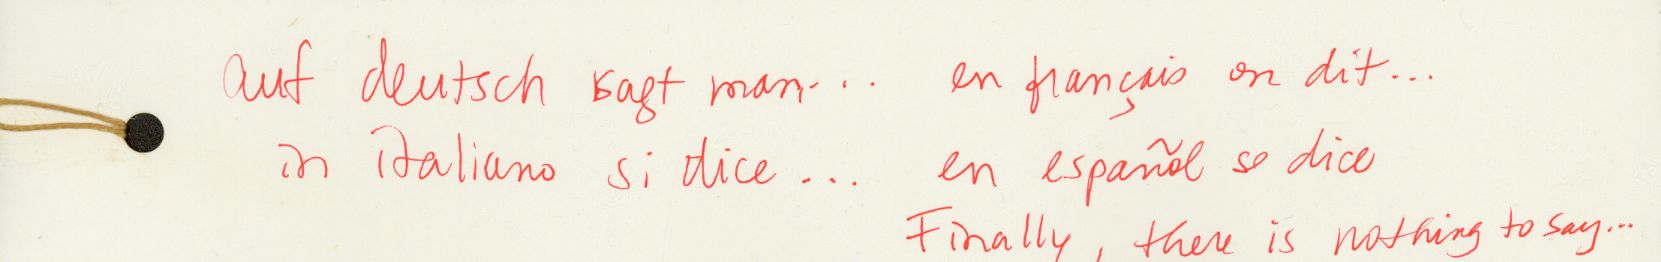 auf deutsch sagt man... en français on dit...
in italiano si dice... en español se dice
Finally, there is nothing to say...